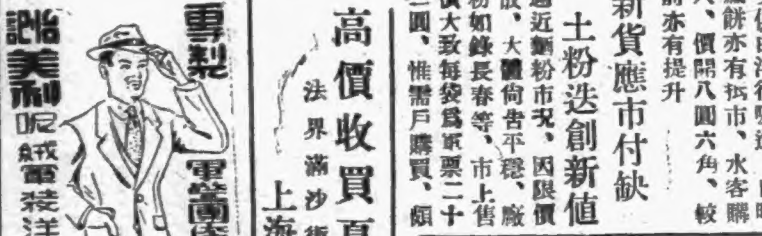 餅亦有抵市、水客購
、價開八圓六角、較
亦有提升
新貨應市付缺
土粉迭創新值
近麵粉市况、因限價
、大體尙告平穩、廠
粉如綠長春等、市上售
價大致每袋爲軍票二十
圓、惟需戶購買、頗
高價收買
法界滿沙街
上海
專製
軍營團
美利
呢絨軍裝洋